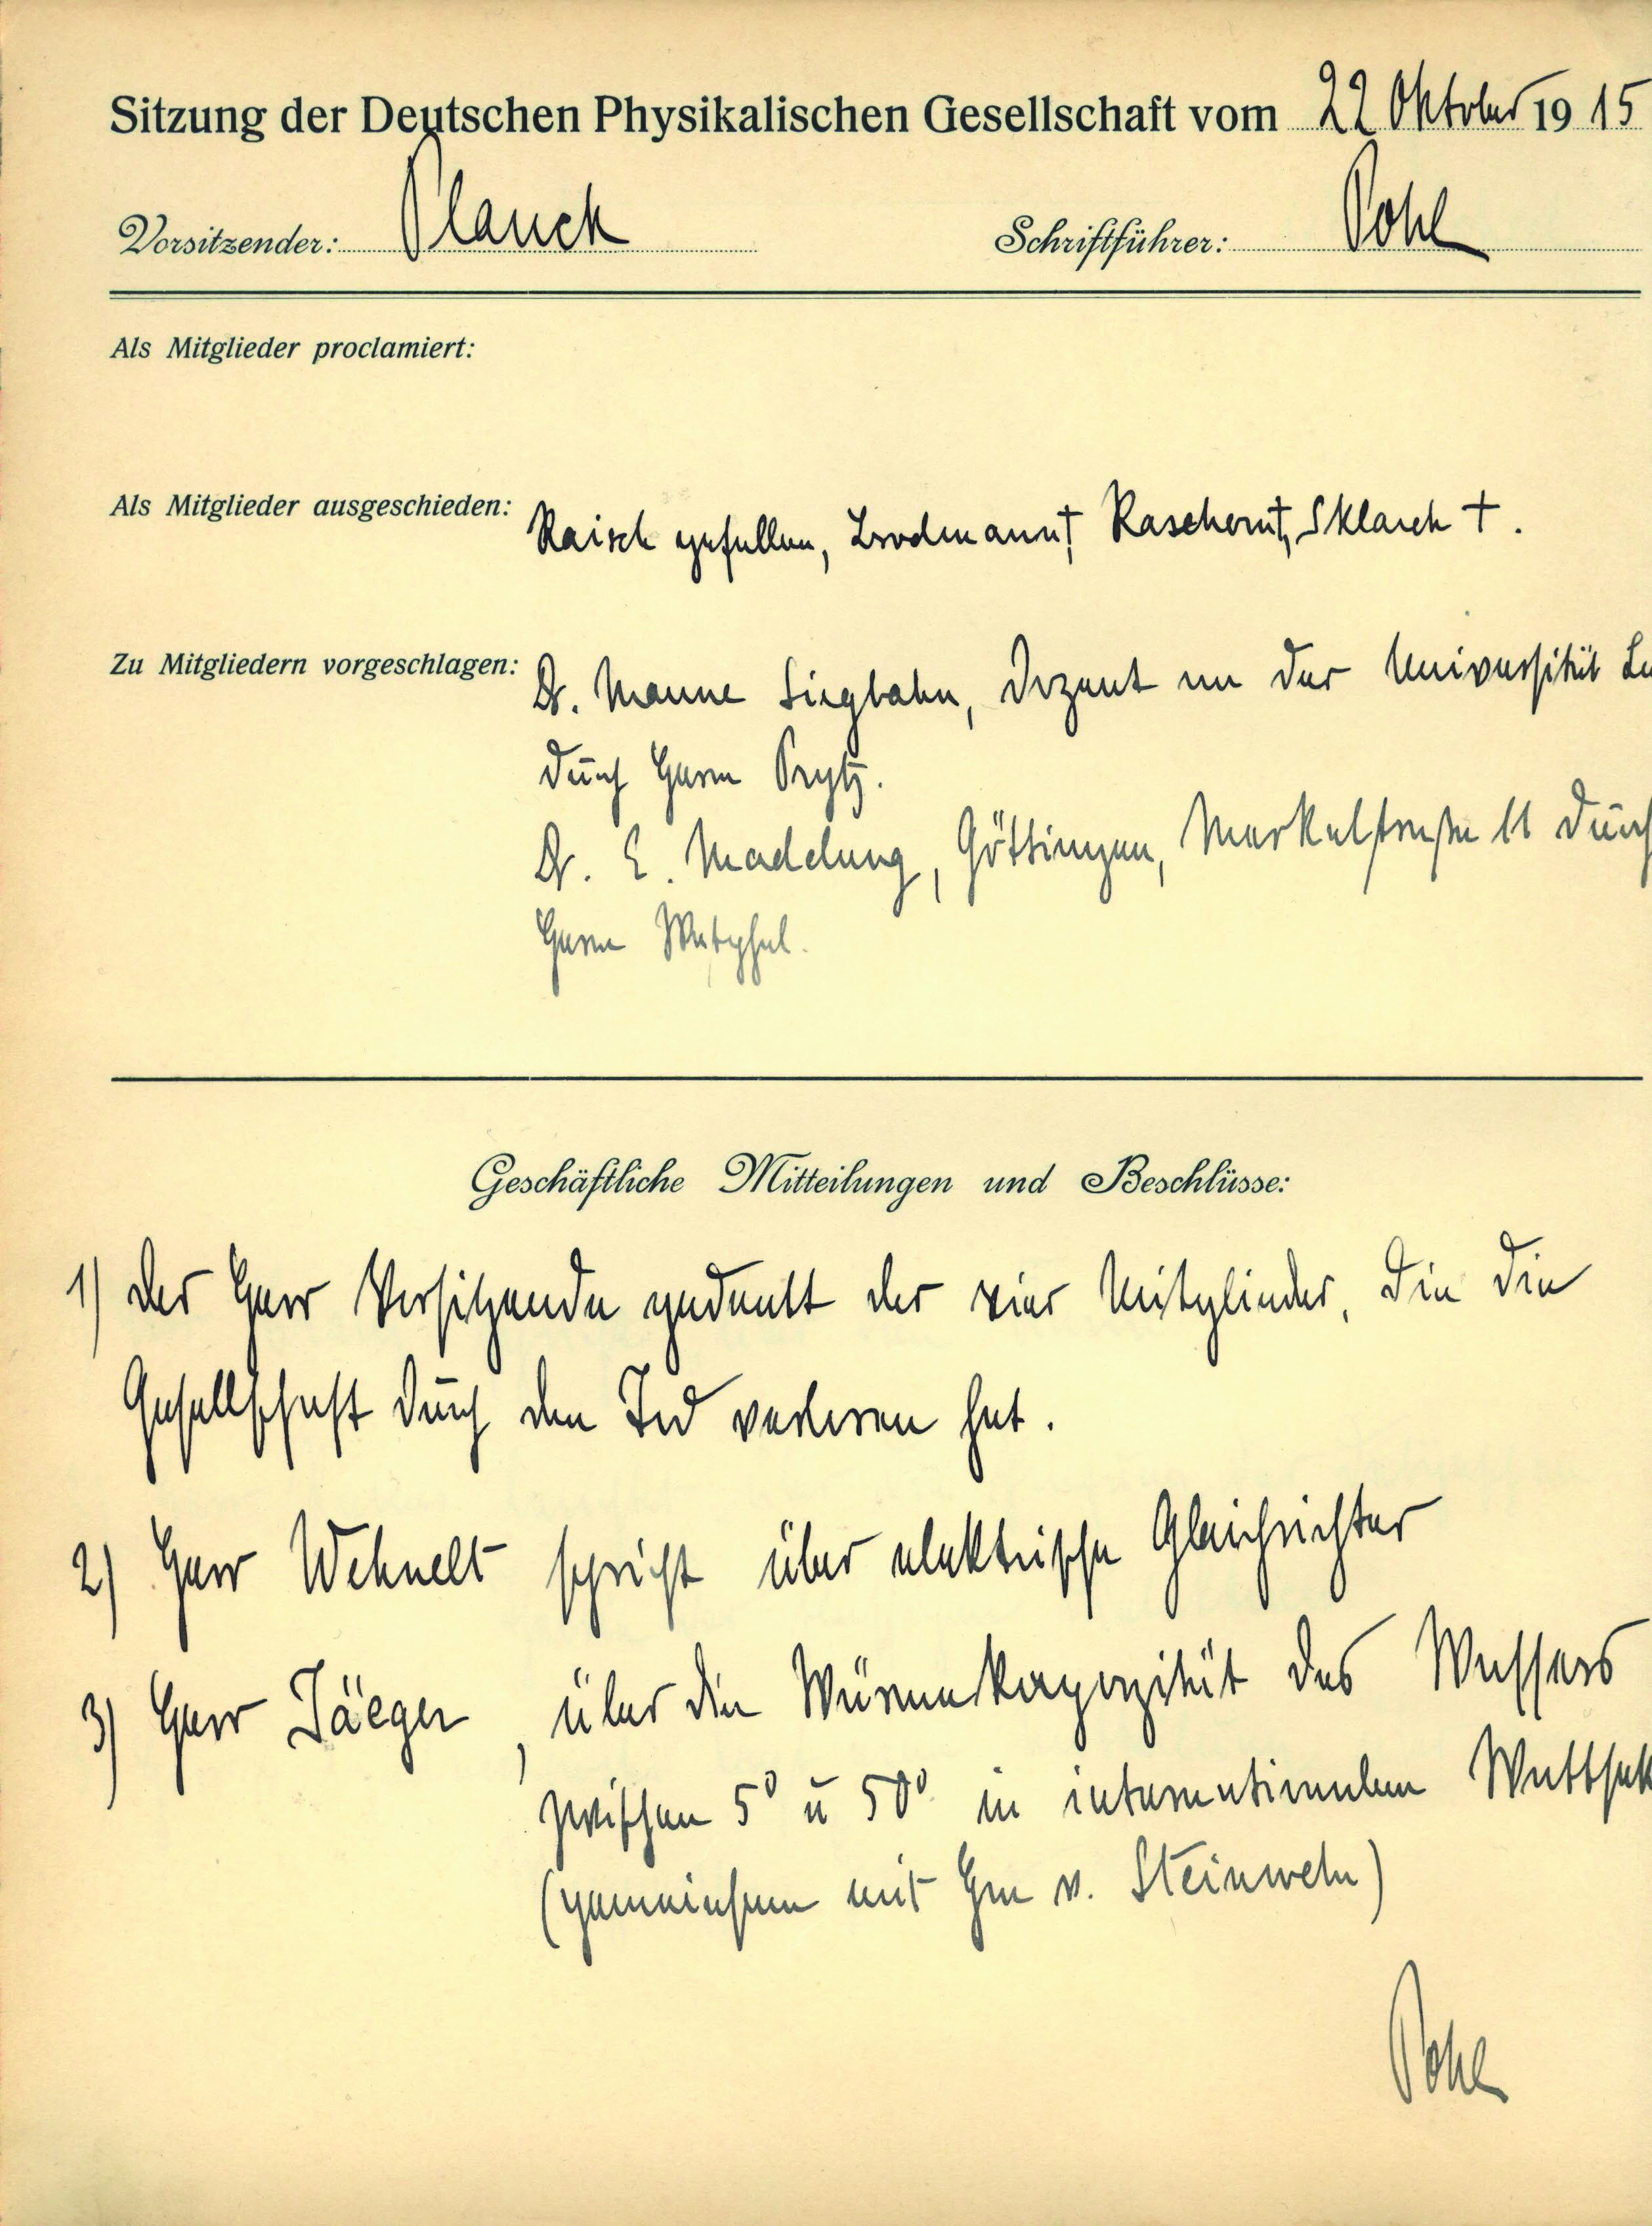 Sitzung der Deutschen Physikalischen Gesellschaft vom 22 Oktober 1915
Vorsitzender: Planck Schriftführer: Pohl
Als Mitglieder proclamiert:
Als Mitglieder ausgeschieden: Raisch gefallen, Brodmann †, Raschorn †, Sklarek †.
Zu Mitgliedern vorgeschlagen: Dr. Manne Siegbahn, Dozent an der Universität Lu
durch Herrn Prytz.
Dr. E. Madelung, Göttingen, Merkelstraße 11 durch
Herrn Westphal.
Geschäftliche Mitteilungen und Beschlüsse:
1) Der Herr Vorsitzende gedenkt der vier Mitglieder, die die
Gesellschaft durch den Tod verloren hat.
2) Herr Wehnelt spricht über elektrische Gleichrichter
3) Herr Jäeger, über die Wärmekapazität des Wassers
zwischen 5° u 50° in internationalen Wattsek
(gemeinsam mit Hrn v. Steinwehr)
Pohl